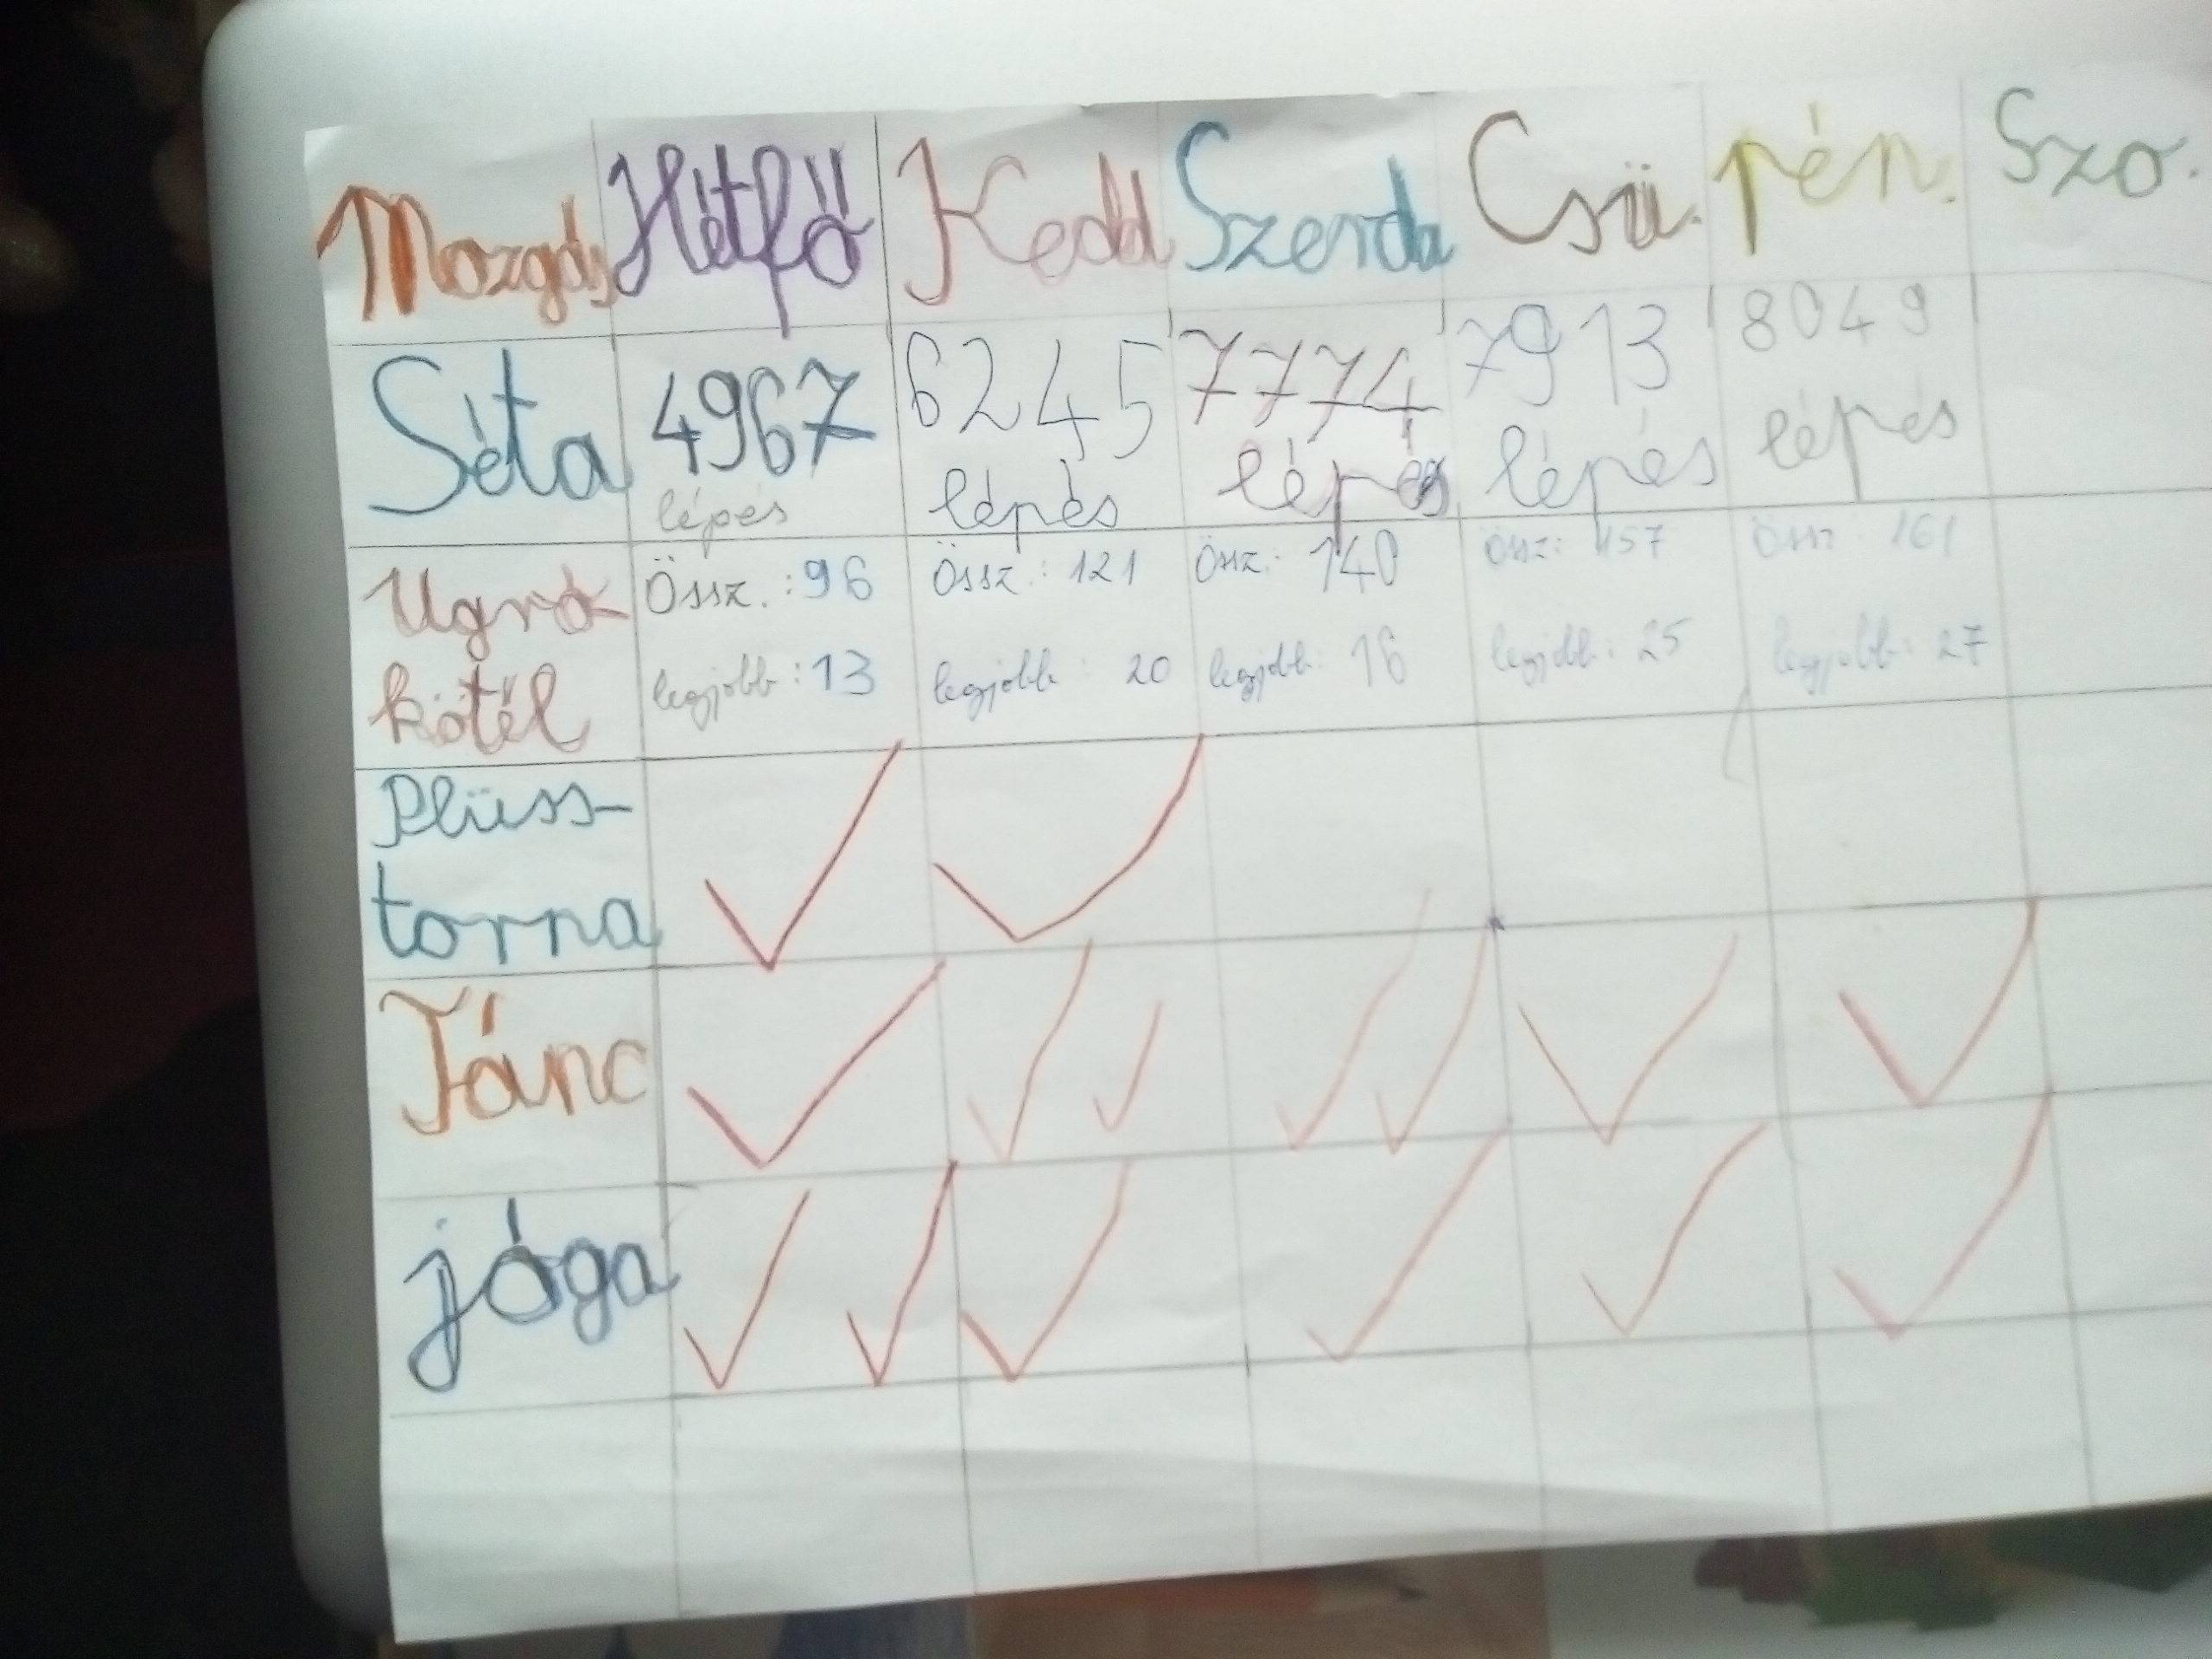 Mozgás Hétfő Kedd Szerda Csü. Pén. Szo.
Séta 4967 6245 7774 7913 8049
lépés lépés lépés lépés lépés
Ugró- Össz.: 96 Össz.: 121 Össz.: 140 Össz.: 157 Össz.: 161
kötél legjobb: 13 legjobb: 20 legjobb: 16 legjobb: 25 legjobb: 27
Plüss-
torna
Tánc
jóga